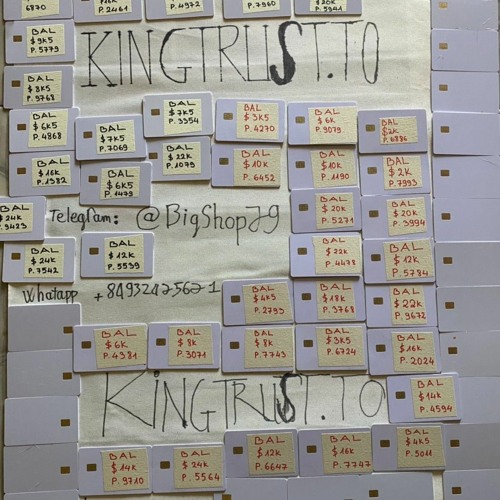 6870
$16K
P. 2461
P. 4972
P. 7960
$20K
P. 5941
BAL
$9K5
P. 5779
KINGTRUST.TO
BAL
$8K5
P. 9768
BAL
$6K5
P. 4868
BAL
$7K5
P. 7069
BAL
$7K5
P. 3354
BAL
$3K5
P. 4270
BAL
$6K
P. 9079
BAL
$2K
P. 6886
BAL
$16K
P. 1382
BAL
$6K5
P. 1479
BAL
$22K
P. 1079
BAL
$10K
P. 6452
BAL
$10K
P. 1190
BAL
$2K
P. 7993
BAL
$24K
P. 9423
Telegram: @BigShopJ9
BAL
$20K
P. 5271
BAL
$20K
P. 3994
BAL
$24K
P. 7542
BAL
$12K
P. 5539
BAL
$22K
P. 4478
BAL
$12K
P. 5784
Whatapp +84932475671
BAL
$4K5
P. 2793
BAL
$18K
P. 3768
BAL
$22K
P. 9672
BAL
$6K
P. 4381
BAL
$8K
P. 3071
BAL
$8K
P. 7743
BAL
$3K5
P. 6724
BAL
$16K
P. 2024
KiNGTRUST.TO
BAL
$14K
P. 4594
BAL
$14K
P. 9710
BAL
$24K
P. 5564
BAL
$12K
P. 6647
BAL
$16K
P. 7747
BAL
$4K5
P. 5011